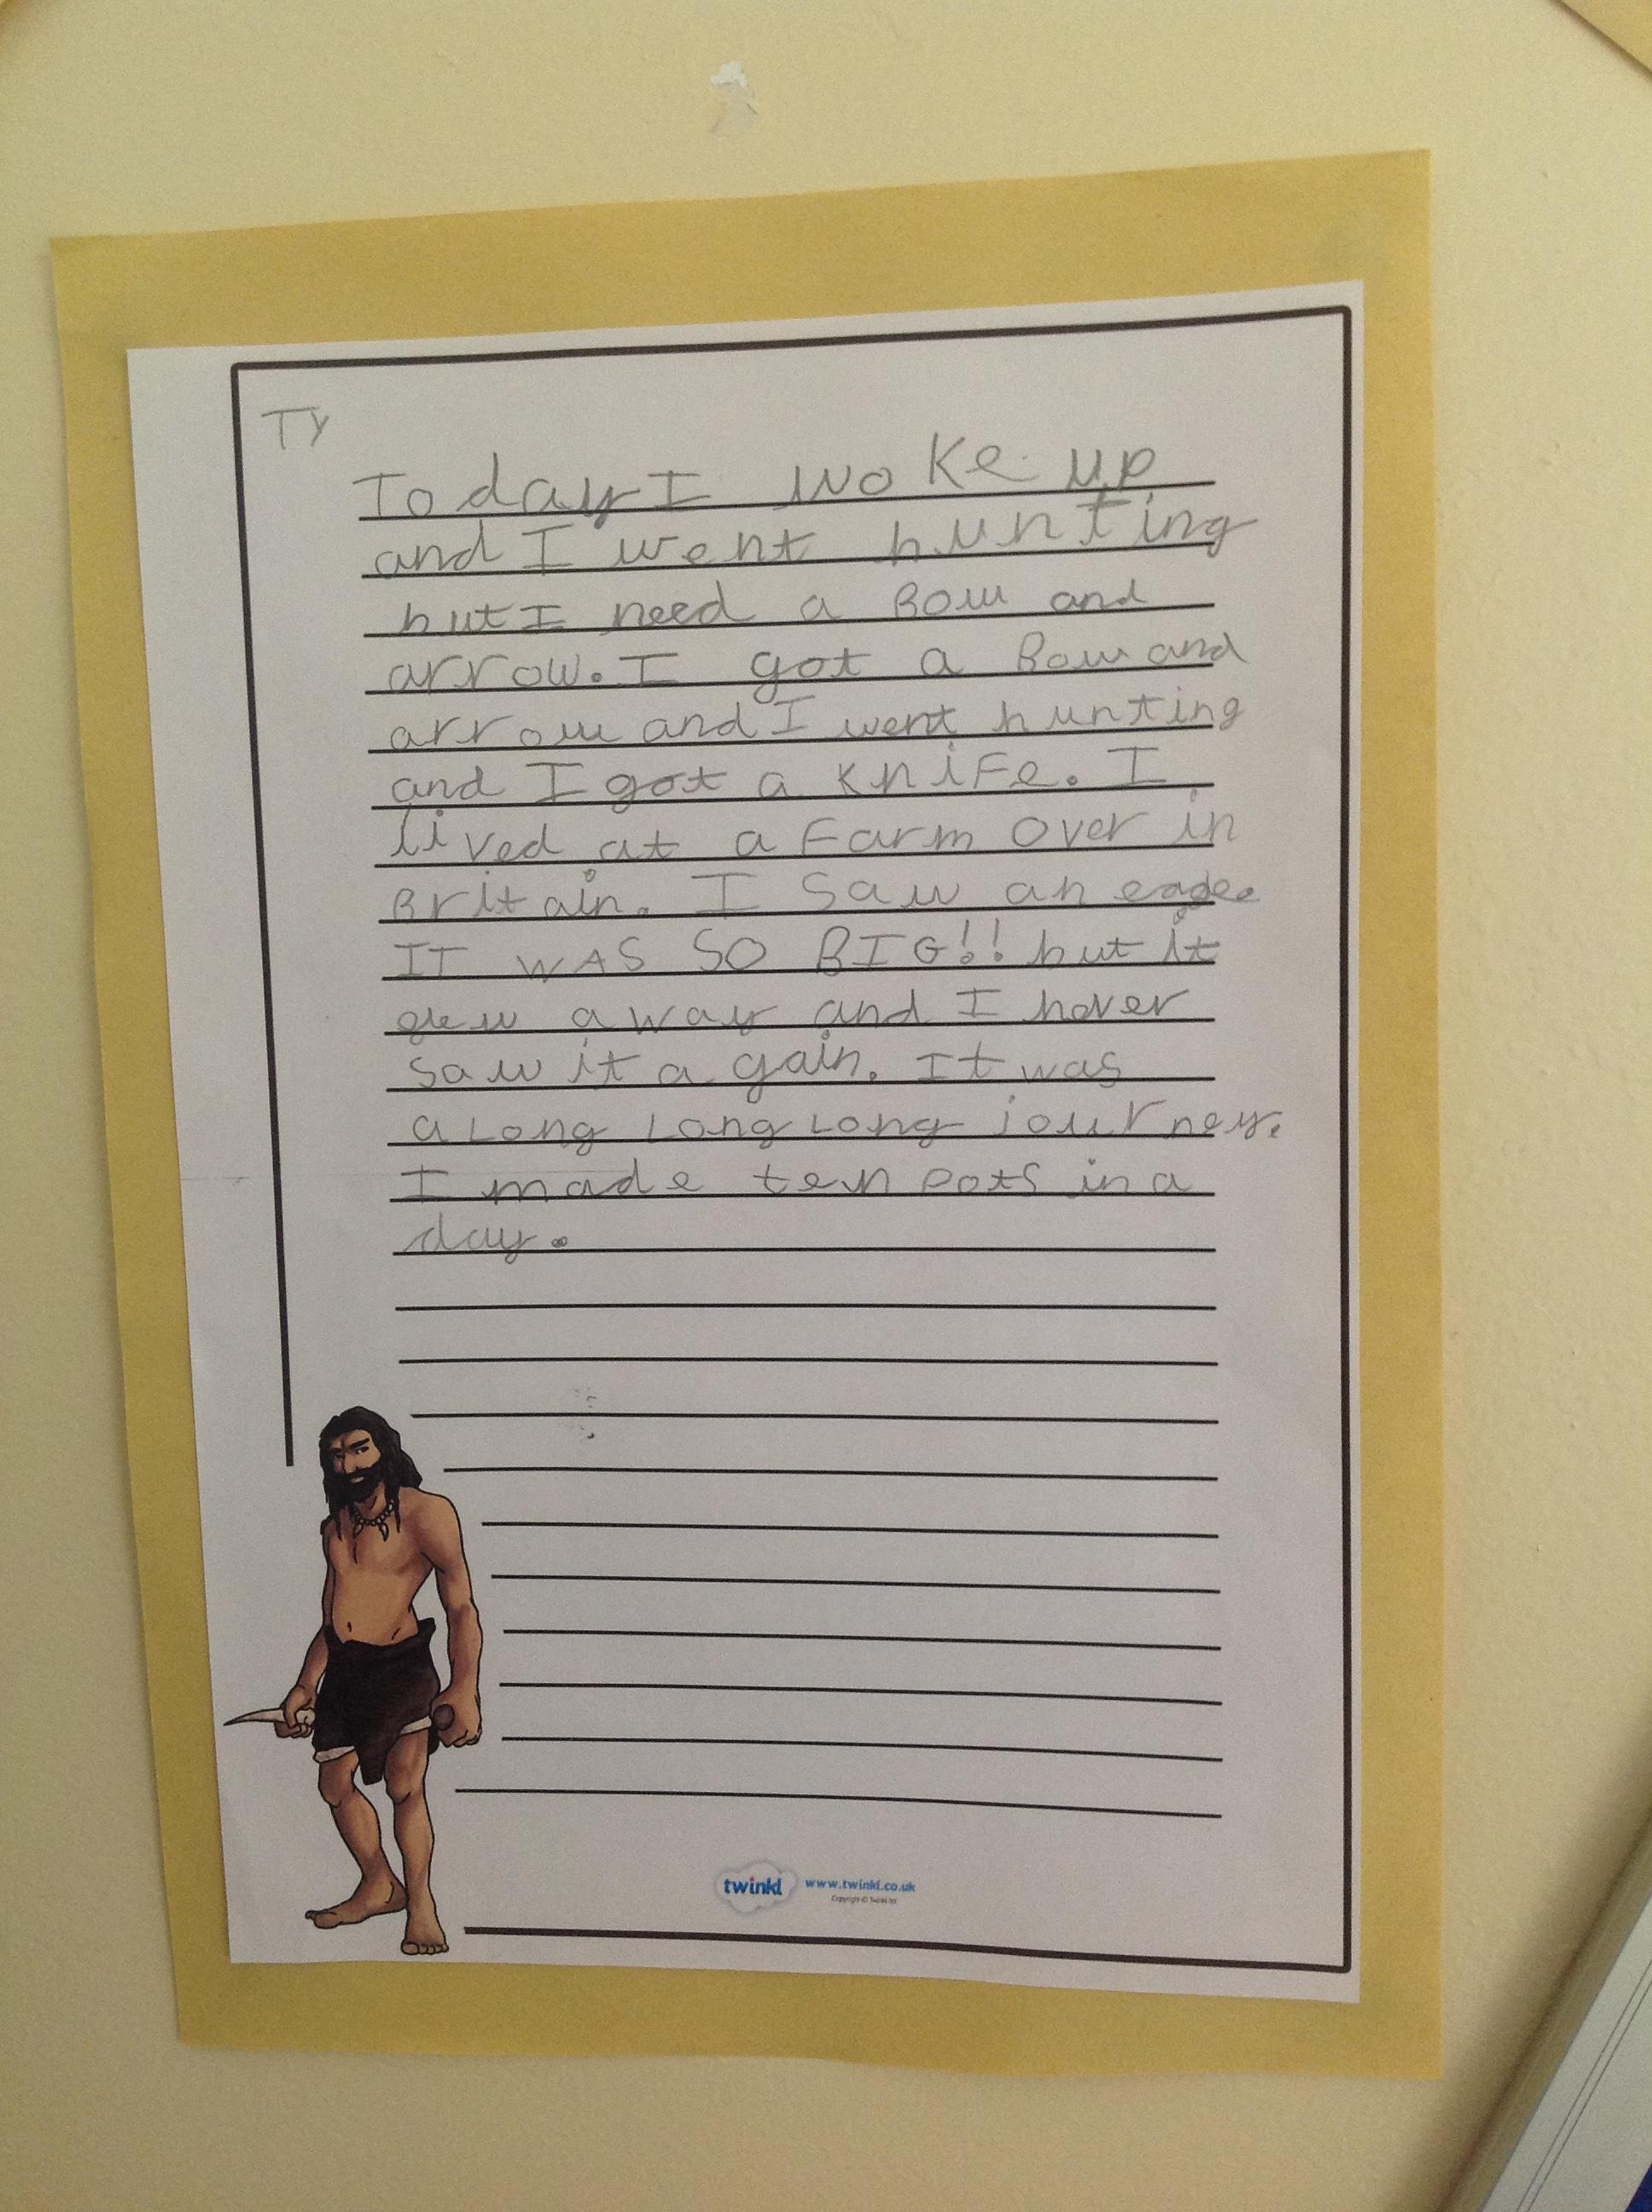 TY
Today I woke up
and I went hunting
but I need a Bow and
arrow. I got a Bow and
arrow and I went hunting
and I got a kniFe. I
lived at a Farm Over in
Britain. I Saw an
IT WAS SO BIG!! but it
away and I
Saw it a gain. It was
a Long Long Long journey.
I made ten Pots in a
day.
twinkl www.twinkl.co.uk